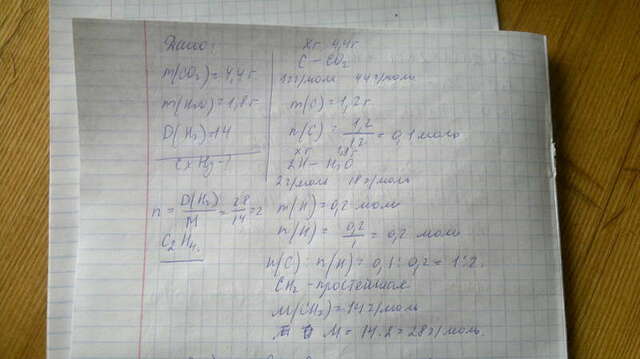 Дано:
m(CO₂) = 4,4 г.
m(H₂O) = 1,8 г
D(H₂) = 14
CxHy - ?
n = D(H₂) / M = 28 / 14 = 2
C₂H₄.
xг 4,4г
C – CO₂
12 г/моль 44 г/моль
m(C) = 1,2 г
n(C) = 1,2 / 12 = 0,1 моль
xг 1,8г
2H – H₂O
2 г/моль 18 г/моль
m(H) = 0,2 моль
n(H) = 0,2 / 1 = 0,2 моль
n(C) : n(H) = 0,1 : 0,2 = 1:2.
CH₂ - простейшая
M(CH₂) = 14 г/моль
M = 14 · 2 = 28 г/моль.